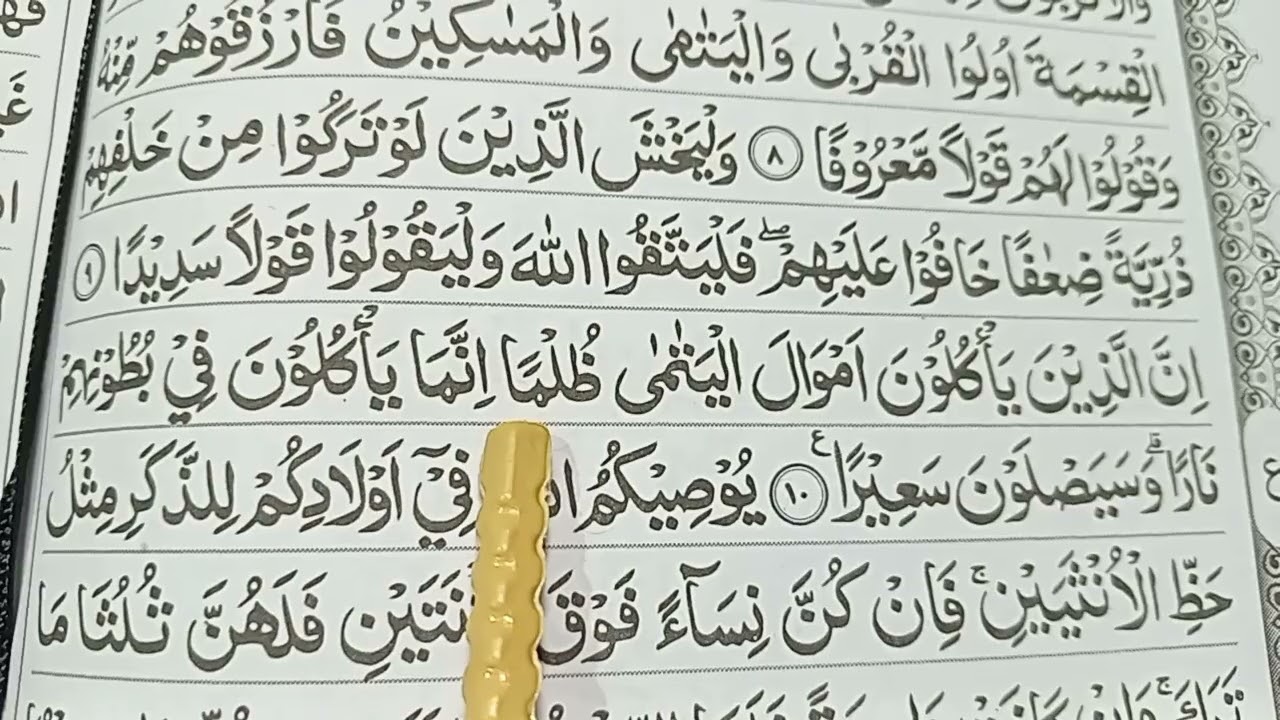 الْقِسْمَةَ اُولُوا الْقُرْبٰى وَالْيَتٰمٰى وَالْمَسٰكِيْنُ فَارْزُقُوْهُمْ مِّنْهُ
وَقُوْلُوْا لَهُمْ قَوْلًا مَّعْرُوْفًا ٨ وَلْيَخْشَ الَّذِيْنَ لَوْ تَرَكُوْا مِنْ خَلْفِهِمْ
ذُرِّيَّةً ضِعٰفًا خَافُوْا عَلَيْهِمْۖ فَلْيَتَّقُوا اللّٰهَ وَلْيَقُوْلُوْا قَوْلًا سَدِيْدًا ٩
اِنَّ الَّذِيْنَ يَأْكُلُوْنَ اَمْوَالَ الْيَتٰمٰى ظُلْمًا اِنَّمَا يَأْكُلُوْنَ فِيْ بُطُوْنِهِمْ
نَارًاۗ وَسَيَصْلَوْنَ سَعِيْرًا ࣖ ١٠ يُوْصِيْكُمُ فِيْٓ اَوْلَادِكُمْ لِلذَّكَرِ مِثْلُ
حَظِّ الْاُنْثَيَيْنِۚ فَاِنْ كُنَّ نِسَاۤءً فَوْقَ فَلَهُنَّ ثُلُثَا مَا